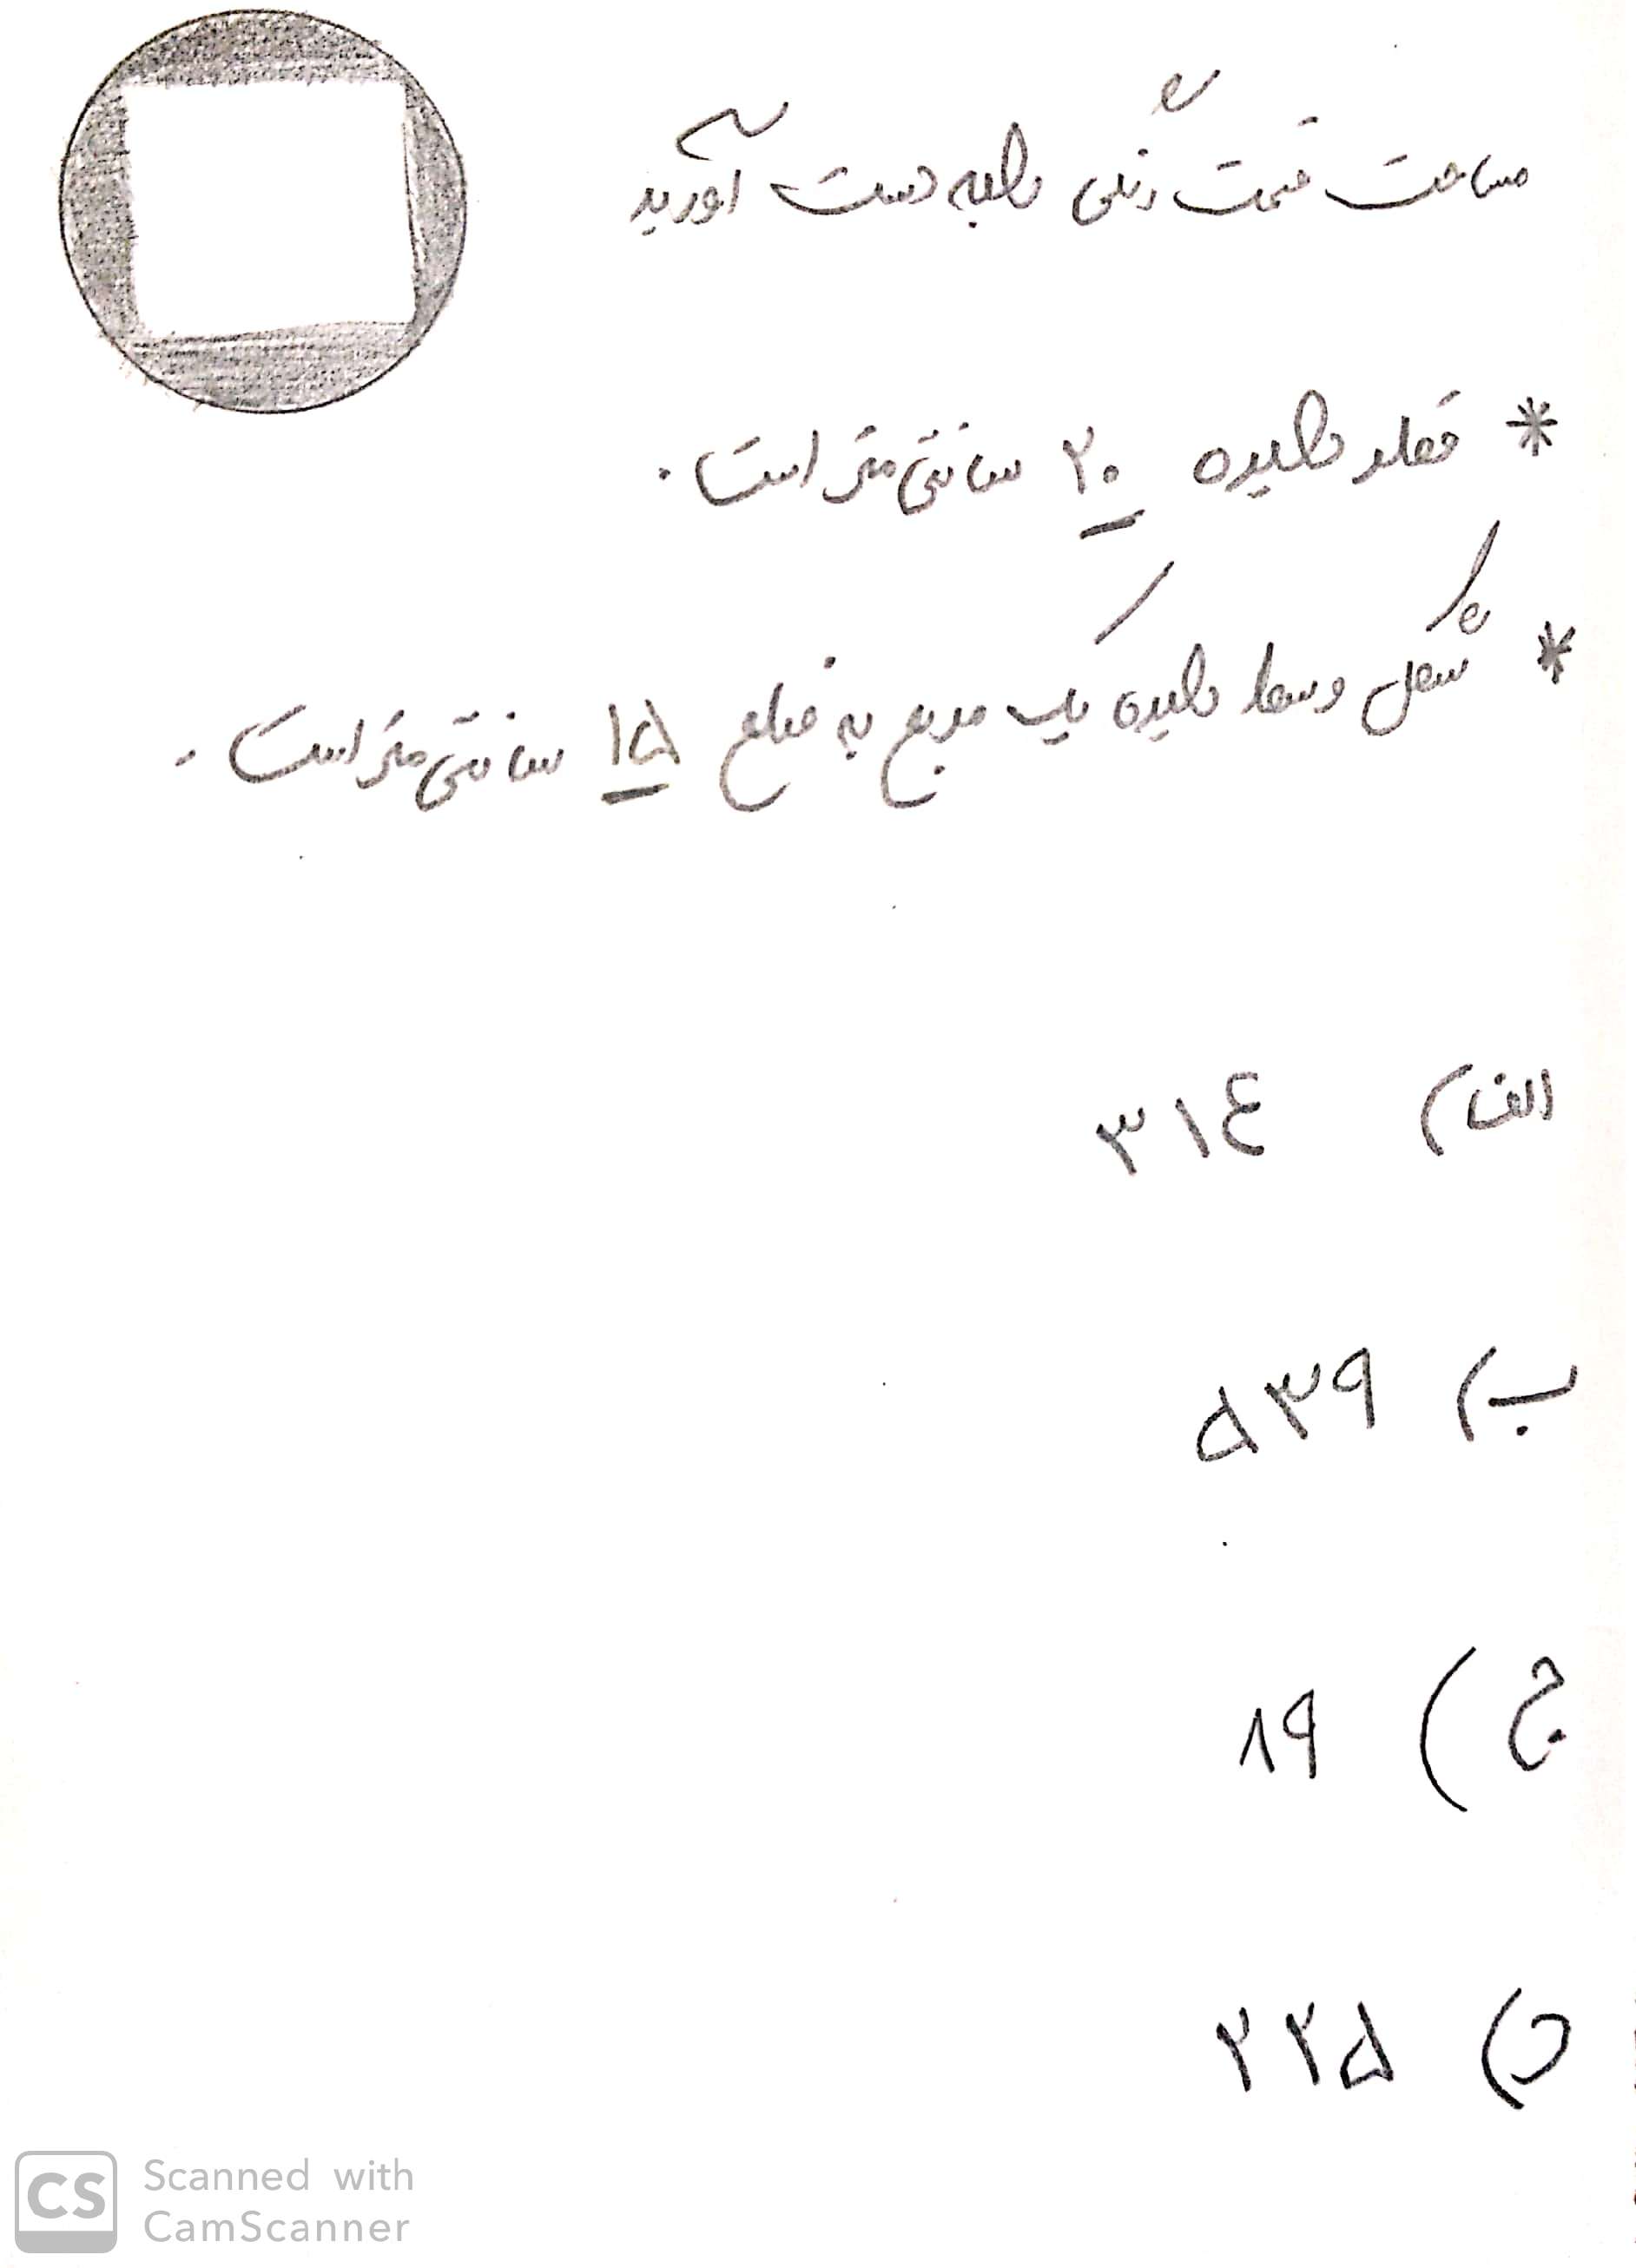 مساحت قسمت رنگی را به دست آورید
* قطر دایره ۲۰ سانتی متر است.
* شکل وسط دایره یک مربع به ضلع ۱۵ سانتی متر است.
الف) ۳۱۴
ب) ۵۳۹
ج) ۸۹
د) ۲۲۵
CS Scanned with
CamScanner